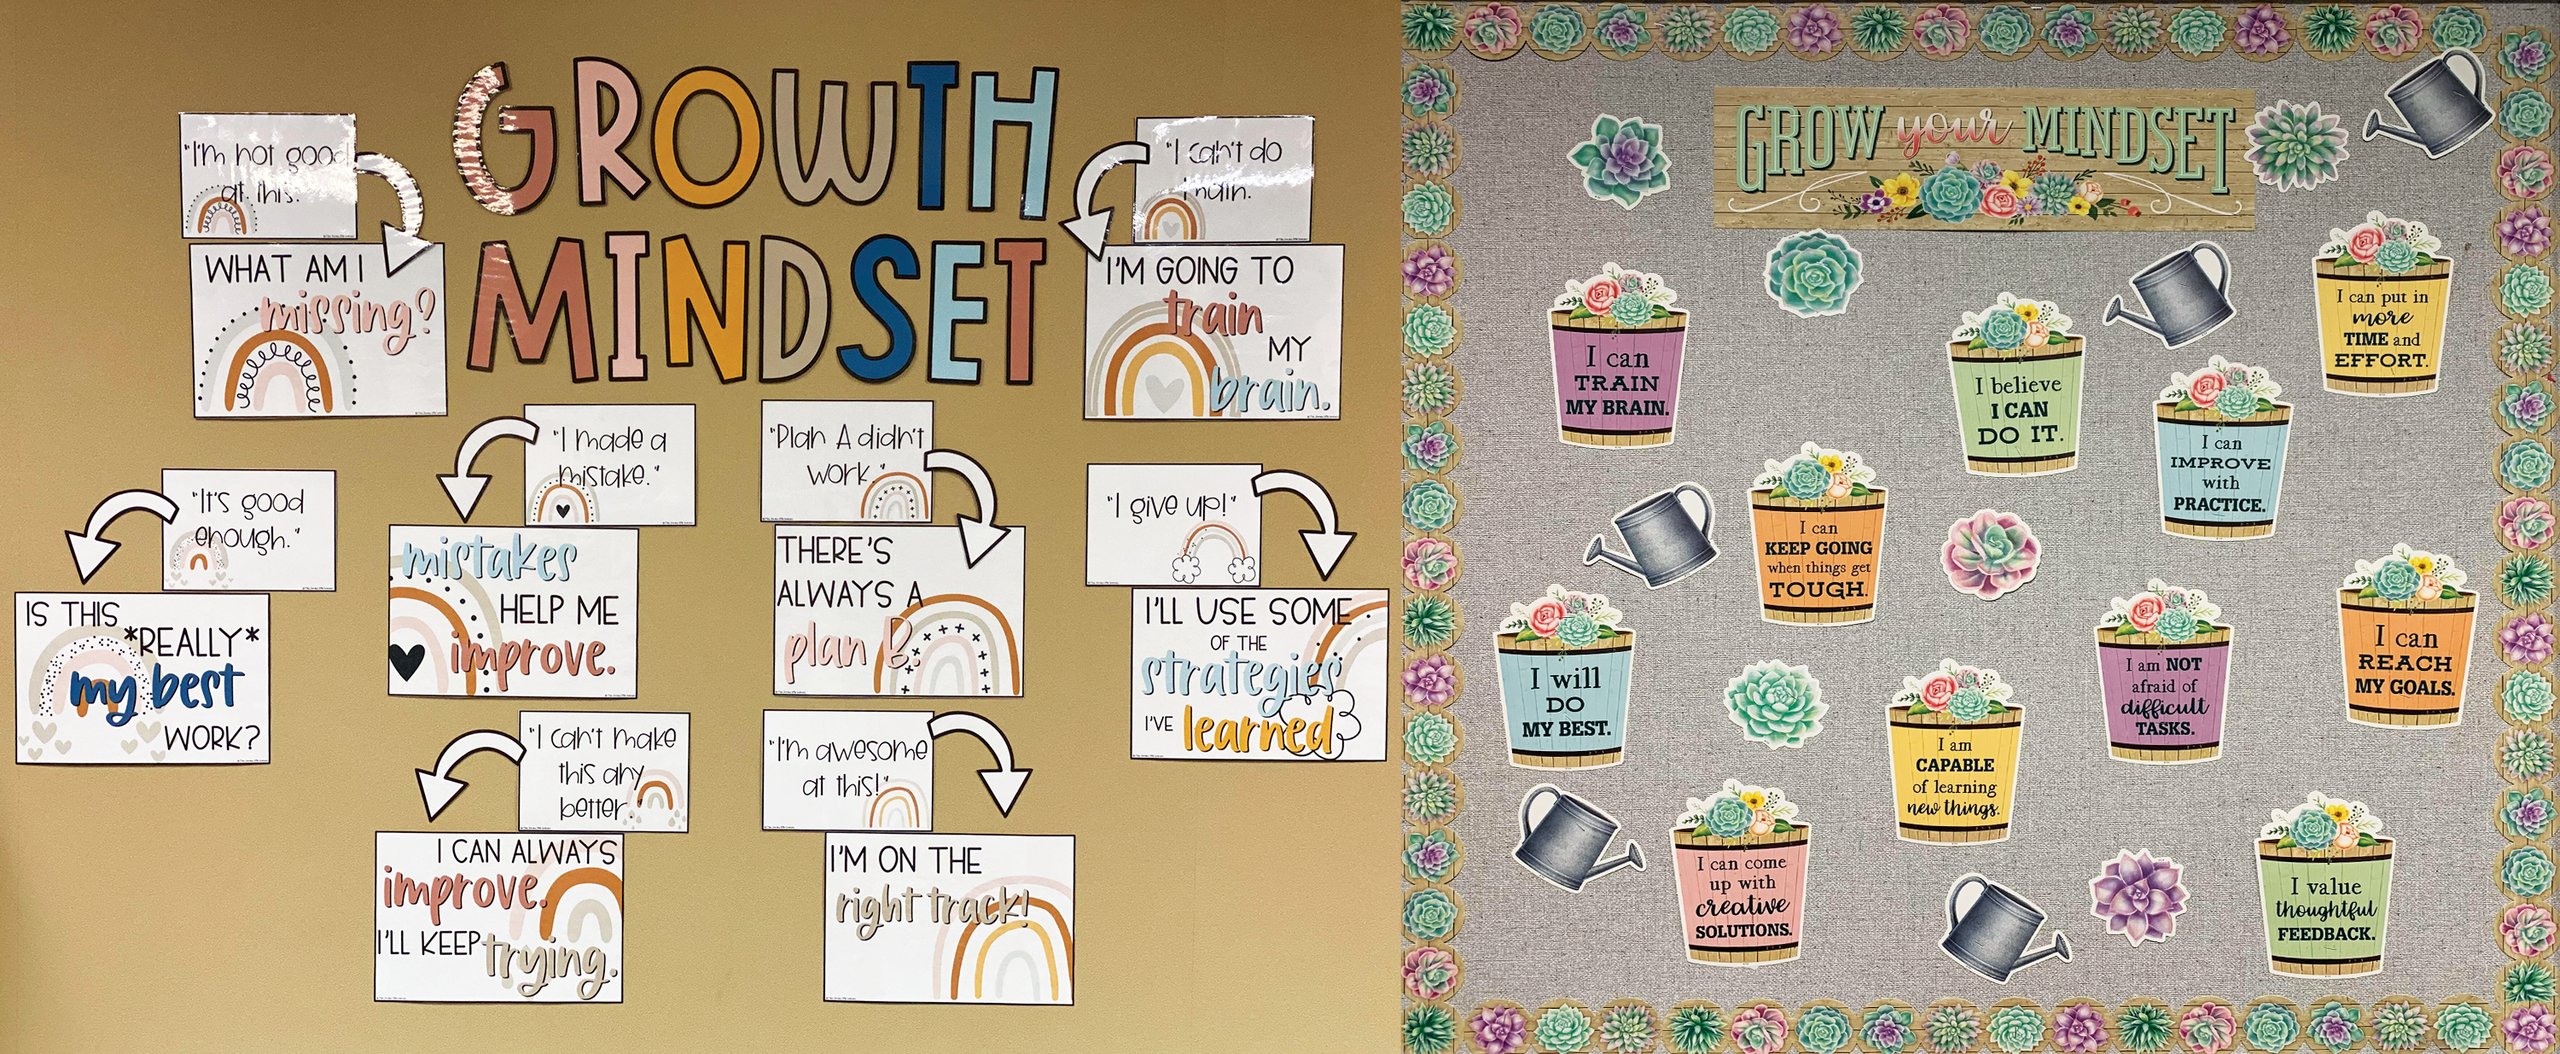 GROWTH
MINDSET
"I'm not good
at this."
WHAT AM I
missing?
"I can't do
main.
I'M GOING TO
train
MY
brain.
"It's good
enough."
IS THIS
*REALLY*
my best
WORK?
"I made a
mistake."
mistakes
HELP ME
improve.
"Plan A didn't
work."
THERE'S
ALWAYS A
plan B.
"I give up!"
I'LL USE SOME
OF THE
strategies
I'VE learned
"I can't make
this any
better
I CAN ALWAYS
improve.
I'LL KEEP trying.
"I'm awesome
at this!"
I'M ON THE
right track!
GROW your MINDSET
I can
TRAIN
MY BRAIN.
I believe
I CAN
DO IT.
I can put in
more
TIME and
EFFORT.
I can
IMPROVE
with
PRACTICE.
I can
KEEP GOING
when things get
TOUGH.
I will
DO
MY BEST.
I am NOT
afraid of
difficult
TASKS.
I can
REACH
MY GOALS.
I am
CAPABLE
of learning
new things.
I can come
up with
creative
SOLUTIONS.
I value
thoughtful
FEEDBACK.